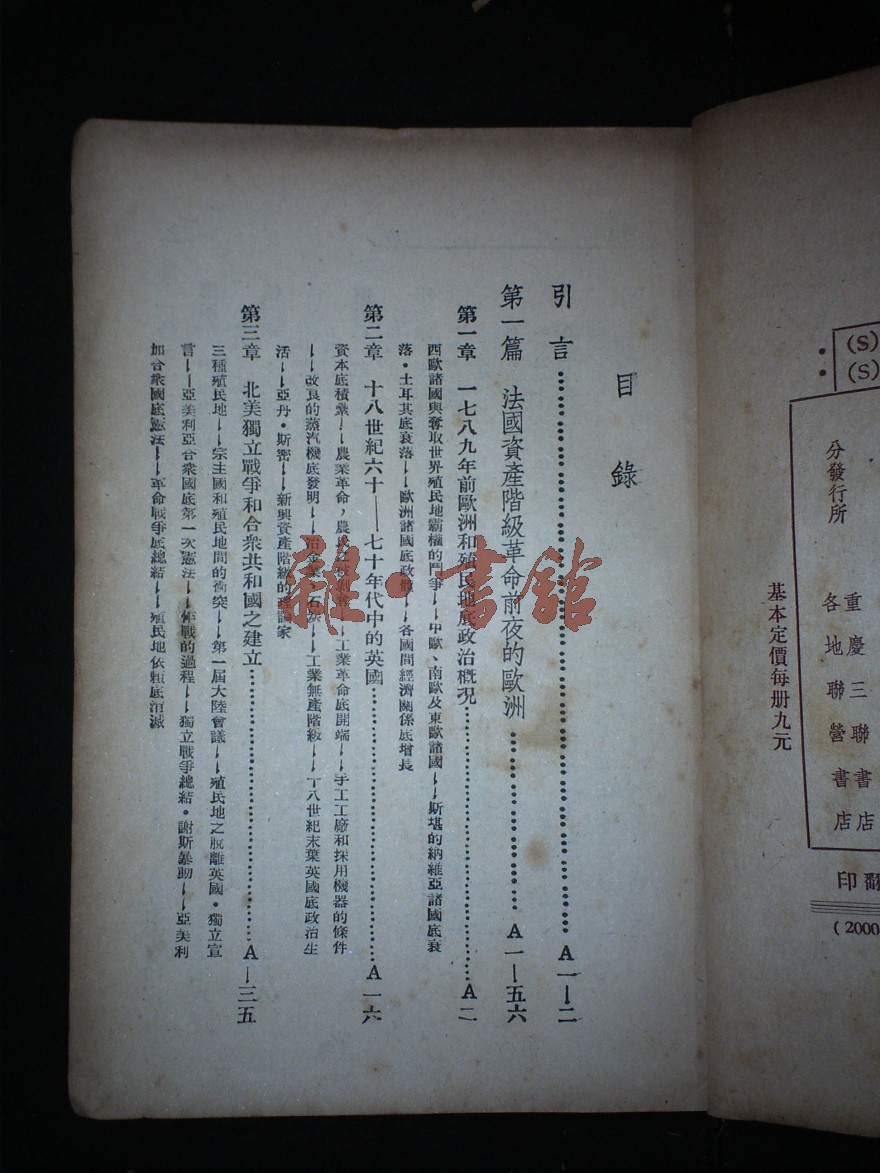 (S)
(S)
分發行所
重慶三聯書店
各地聯營書店
基本定價每册九元
印翻
(2000
目錄
引言 A一—二
第一篇 法國資產階級革命前夜的歐洲 A一—五六
第一章 一七八九年前歐洲和殖民地底政治概况 A二
西歐諸國與奪取世界殖民地霸權的鬥爭——中歐、南歐及東歐諸國——斯堪的納維亞諸國底衰
落・土耳其底衰落——歐洲諸國底政體——各國間經濟關係底增長
第二章 十八世紀六十——七十年代中的英國 A一六
資本底積纍——農業革命，農民之被剝奪——工業革命底開端——手工工廠和採用機器的條件
——改良的蒸汽機底發明——冶金業、石炭——工業無產階級——十八世紀末葉英國底政治生
活——亞丹・斯密——新興資產階級的理論家
第三章 北美獨立戰爭和合衆共和國之建立 A—三五
三種殖民地——宗主國和殖民地間的衝突——第一屆大陸會議——殖民地之脫離英國・獨立宣
言——亞美利亞合衆國底第一次憲法——作戰的過程——獨立戰爭總結・謝斯暴動——亞美利
加合衆國底憲法——革命戰爭底總結——殖民地依賴底消滅
雜・書館